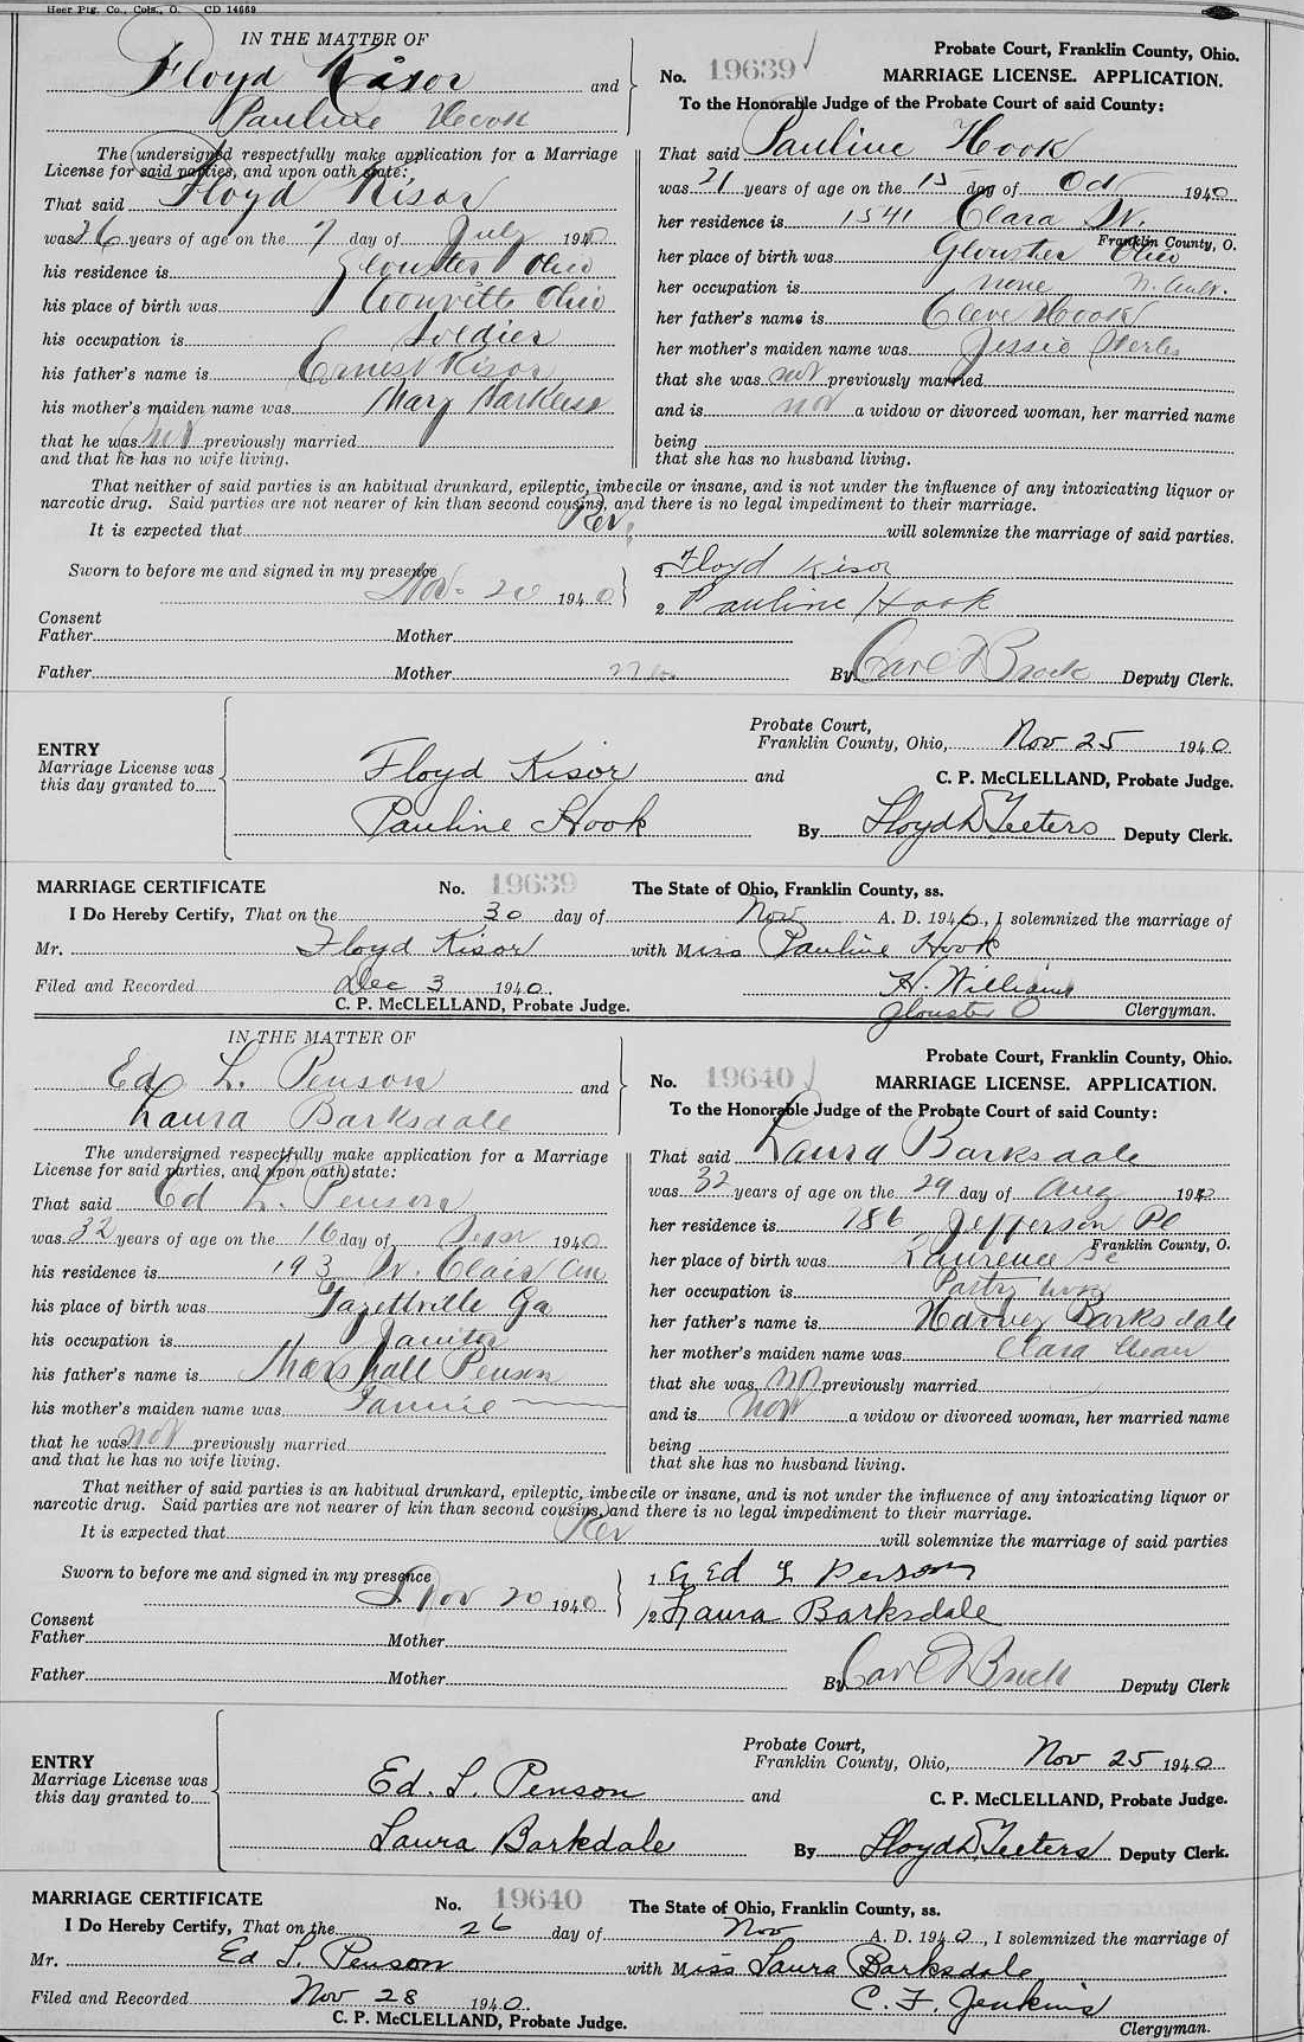 Heer Ptg. Co., Cols., O. CD 14669
IN THE MATTER OF
Floyd Kisor and
Pauline Hook
The undersigned respectfully make application for a Marriage
License for said parties, and upon oath state:
That said Floyd Kisor
was 26 years of age on the 7 day of July 1940
his residence is Glouster Ohio
his place of birth was Ohio
his occupation is Soldier
his father's name is Ernest Kisor
his mother's maiden name was Mary Harkless
that he was not previously married
and that he has no wife living.
Probate Court, Franklin County, Ohio.
No. 19639 MARRIAGE LICENSE. APPLICATION.
To the Honorable Judge of the Probate Court of said County:
That said Pauline Hook
was 21 years of age on the 15 day of Oct 1940
her residence is 1541 Clara St.
Franklin County, O.
her place of birth was Glouster Ohio
her occupation is none
her father's name is Cleve Hook
her mother's maiden name was Jessie
that she was not previously married
and is not a widow or divorced woman, her married name
being
that she has no husband living.
That neither of said parties is an habitual drunkard, epileptic, imbecile or insane, and is not under the influence of any intoxicating liquor or
narcotic drug. Said parties are not nearer of kin than second cousins, and there is no legal impediment to their marriage.
It is expected that Rev. will solemnize the marriage of said parties.
Sworn to before me and signed in my presence
Nov. 20 1940
1 Floyd Kisor
2 Pauline Hook
Consent
Father Mother
Father Mother
By Carl D Brock Deputy Clerk.
ENTRY
Marriage License was
this day granted to
Floyd Kisor and
Pauline Hook
Probate Court,
Franklin County, Ohio, Nov 25 1940
C. P. McCLELLAND, Probate Judge.
By Lloyd D. Teeters Deputy Clerk.
MARRIAGE CERTIFICATE No. 19639 The State of Ohio, Franklin County, ss.
I Do Hereby Certify, That on the 30 day of Nov A. D. 1940, I solemnized the marriage of
Mr. Floyd Kisor with Miss Pauline Hook
Filed and Recorded Dec 3 1940 H. Williams
C. P. McCLELLAND, Probate Judge. Glouster O Clergyman.
IN THE MATTER OF
Ed L. Penson and
Laura Barksdale
The undersigned respectfully make application for a Marriage
License for said parties, and upon oath state:
That said Ed L. Penson
was 32 years of age on the 16 day of Sept 1940
his residence is 193 St. Clair Ave
his place of birth was Fayettville Ga
his occupation is Janitor
his father's name is Marshall Penson
his mother's maiden name was Fannie
that he was not previously married
and that he has no wife living.
Probate Court, Franklin County, Ohio.
No. 19640 MARRIAGE LICENSE. APPLICATION.
To the Honorable Judge of the Probate Court of said County:
That said Laura Barksdale
was 32 years of age on the 29 day of Aug 1940
her residence is 186 Jefferson Pl
Franklin County, O.
her place of birth was Laurence Sc
her occupation is Pastry
her father's name is Harvey Barksdale
her mother's maiden name was Clara
that she was not previously married
and is not a widow or divorced woman, her married name
being
that she has no husband living.
That neither of said parties is an habitual drunkard, epileptic, imbecile or insane, and is not under the influence of any intoxicating liquor or
narcotic drug. Said parties are not nearer of kin than second cousins, and there is no legal impediment to their marriage.
It is expected that Rev will solemnize the marriage of said parties
Sworn to before me and signed in my presence
Nov 20 1940
1 Ed L Penson
2 Laura Barksdale
Consent
Father Mother
Father Mother
By Carl D Brock Deputy Clerk
ENTRY
Marriage License was
this day granted to
Ed. L. Penson and
Laura Barkdale
Probate Court,
Franklin County, Ohio, Nov 25 1940
C. P. McCLELLAND, Probate Judge.
By Lloyd D. Teeters Deputy Clerk.
MARRIAGE CERTIFICATE No. 19640 The State of Ohio, Franklin County, ss.
I Do Hereby Certify, That on the 26 day of Nov A. D. 1940, I solemnized the marriage of
Mr. Ed L. Penson with Miss Laura Barksdale
Filed and Recorded Nov 28 1940. C. F. Jenkins
C. P. McCLELLAND, Probate Judge. Clergyman.